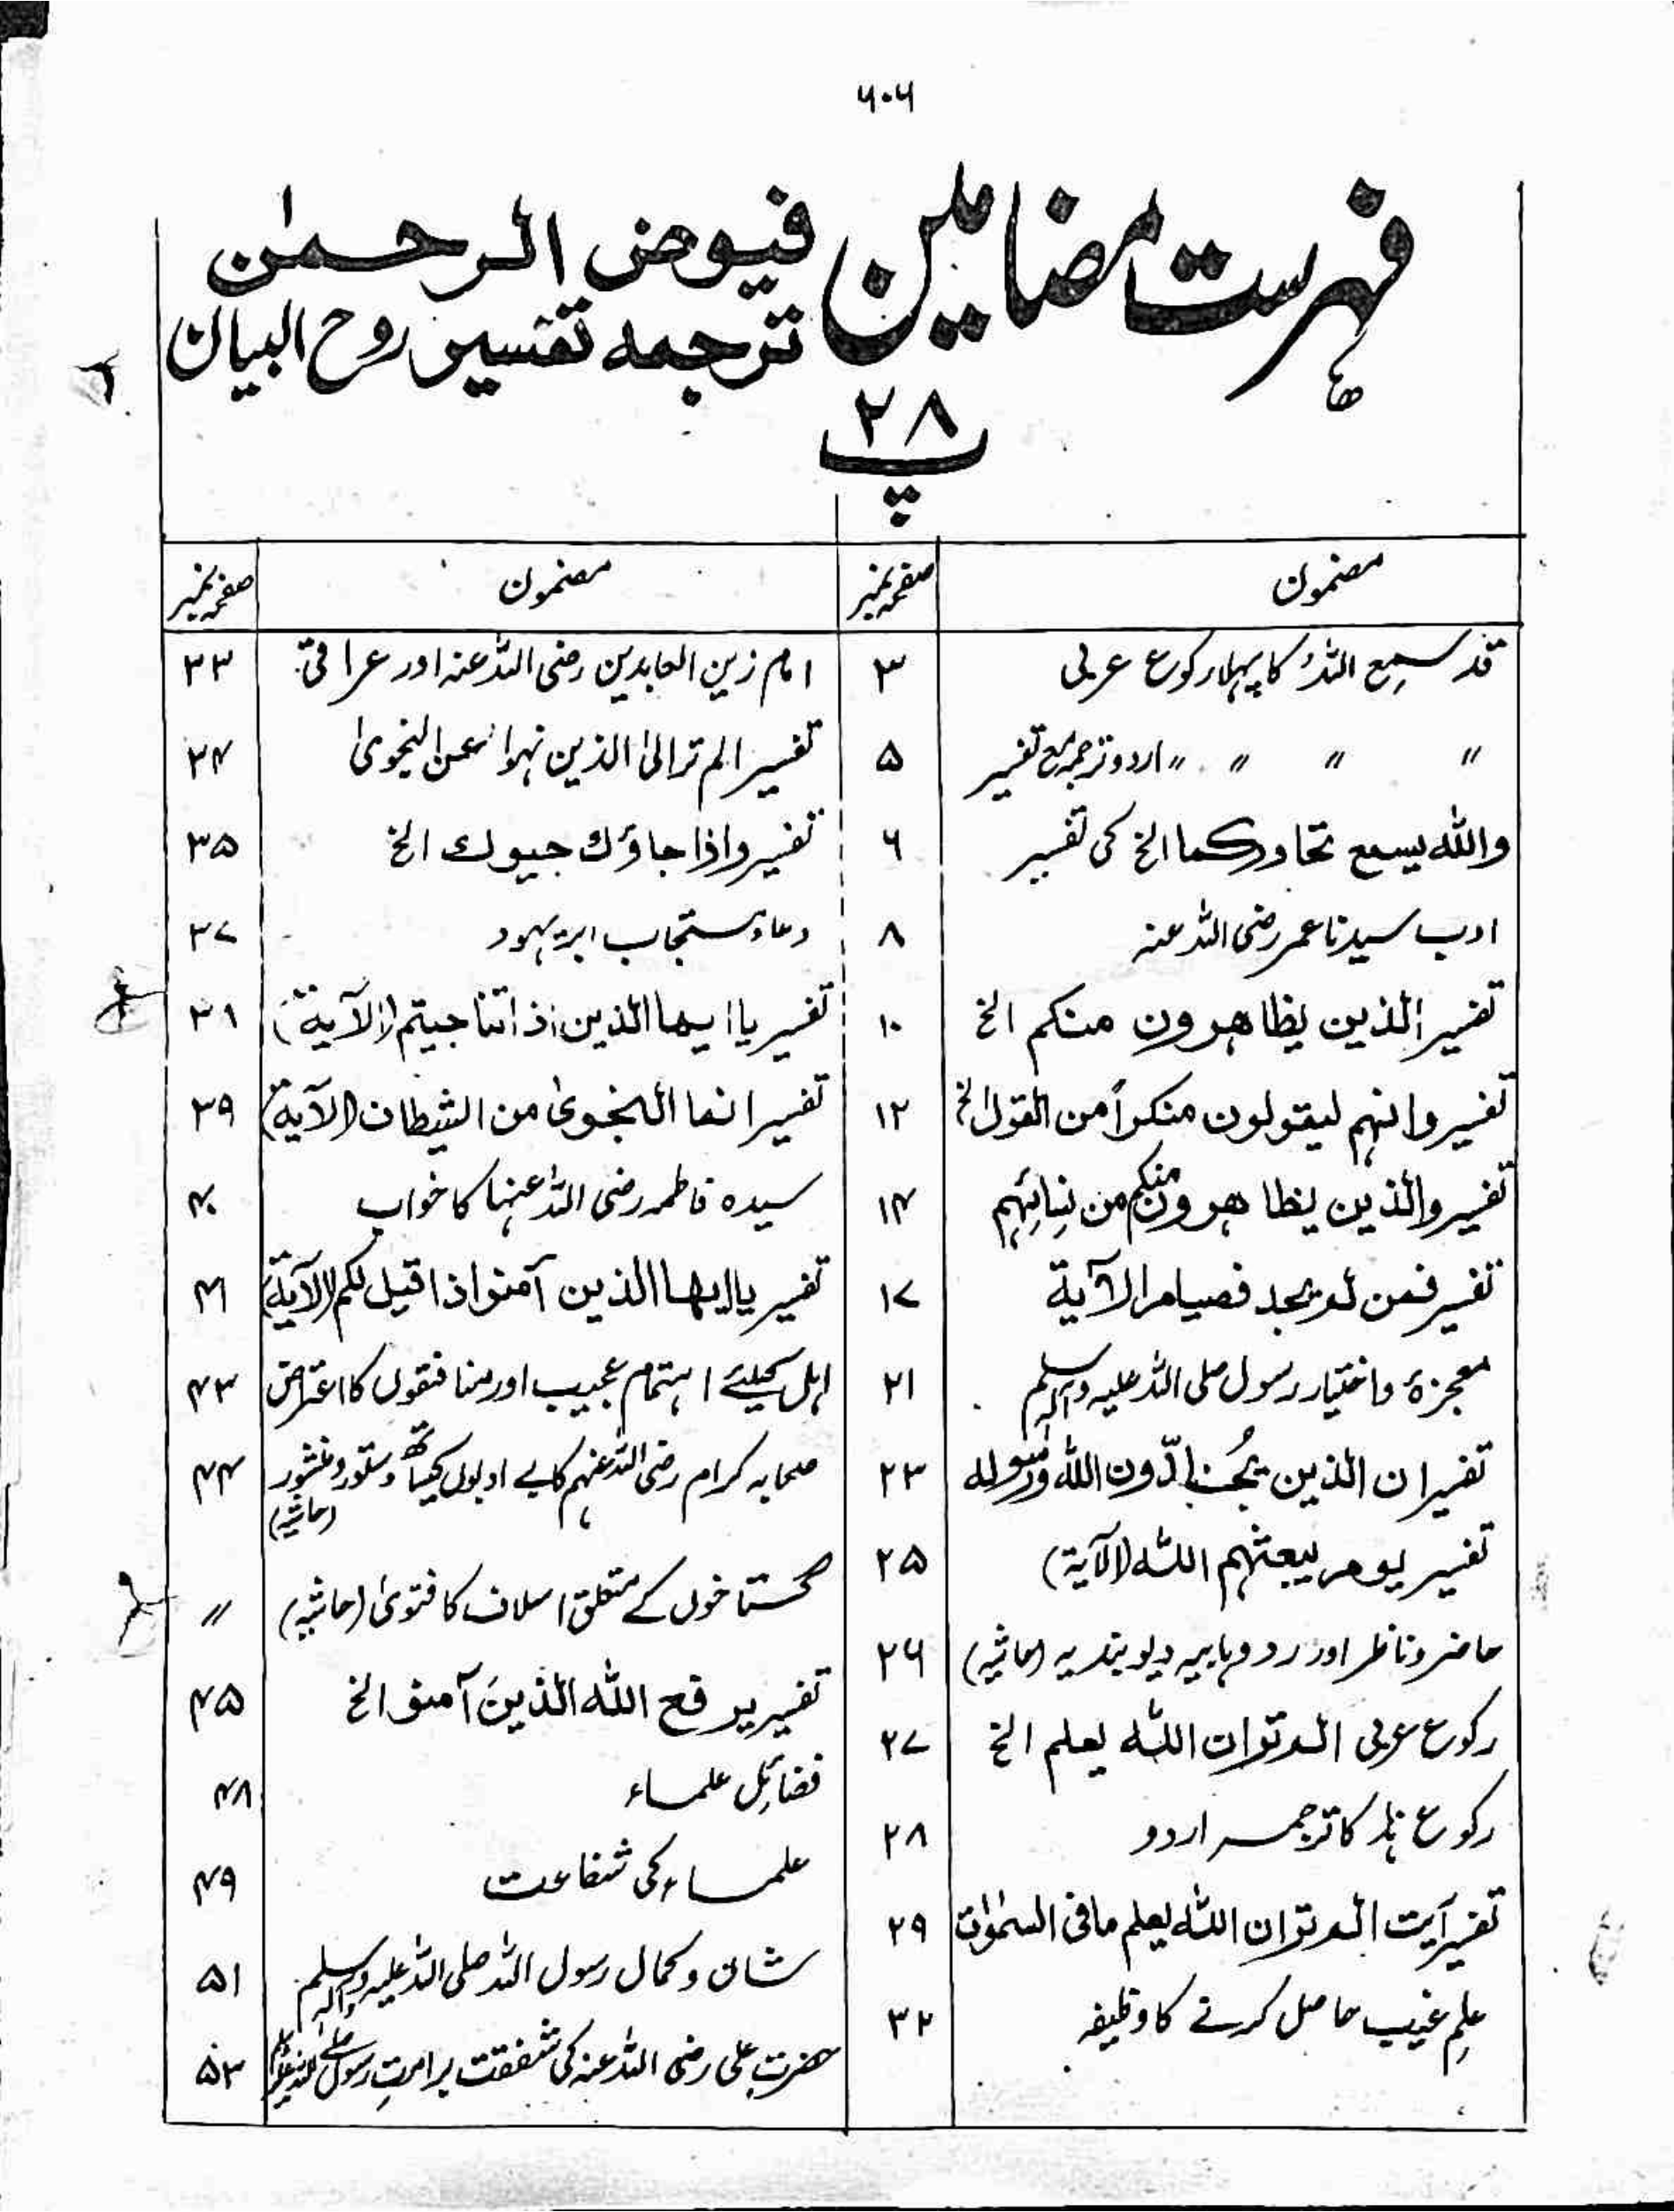 ۶۰۶
فہرست مضامین فیوض الرحمٰن
ترجمه تفسیر روح البیان
پ ۲۸
مضمون صفحہ نمبر
قد سمع اللہ کا پہلا رکوع عربی ۳
〃 〃 〃 〃 اردو ترجمہ مع تفسیر ۵
واللہ یسمع تحاورکما الخ کی تفسیر ۶
ادب سیدنا عمر رضی اللہ عنہ ۸
تفسیر الذین یظاھرون منکم الخ ۱۰
تفسیر وانہم لیقولون منکراً من القول الخ ۱۲
تفسیر والذین یظاھرون منکم من نسائہم ۱۴
تفسیر فمن لم یجد فصیام الآیة ۱۷
معجزہ و اختیار رسول صلی اللہ علیہ وآلہ وسلم ۲۱
تفسیر ان الذین یحادّون اللہ ورسولہ ۲۳
تفسیر یوم یبعثہم اللہ (الآیة) ۲۵
حاضر و ناظر اور رد وہابیہ دیوبندیہ (حاشیہ) ۲۶
رکوع عربی الم تر ان اللہ یعلم الخ ۲۷
رکوع ہذا کا ترجمہ اردو ۲۸
تفسیر آیت الم تر ان اللہ یعلم مافی السمٰوٰت ۲۹
علمِ غیب حاصل کرنے کا وظیفہ ۳۲
مضمون صفحہ نمبر
امام زین العابدین رضی اللہ عنہ اور عراقی ۳۳
تفسیر الم تر الی الذین نہوا عن النجویٰ ۳۴
تفسیر واذا جاؤك حیوك الخ ۳۵
دعاء مستجاب بریہود ۳۷
تفسیر یا ایھا الذین اذا تناجیتم (الآیة) ۳۸
تفسیر انما النجویٰ من الشیطان (الآیة) ۳۹
سیدہ فاطمہ رضی اللہ عنہا کا خواب ۴۰
تفسیر یا ایھا الذین آمنوا اذا قیل لکم (الآیة) ۴۱
اہل کیلئے اہتمام عجیب اور منافقوں کا اعتراض ۴۳
صحابہ کرام رضی اللہ عنہم کا بے ادبوں کیساتھ دستور و منشور (حاشیہ) ۴۴
گستاخوں کے متعلق اسلاف کا فتویٰ (حاشیہ) 〃
تفسیر یرفع اللہ الذین آمنوا الخ ۴۵
فضائل علماء ۴۸
علماء کی شفاعت ۴۹
شان و کمال رسول اللہ صلی اللہ علیہ وآلہ وسلم ۵۱
حضرت علی رضی اللہ عنہ کی شفقت بر امتِ رسول صلی اللہ علیہ وسلم ۵۳